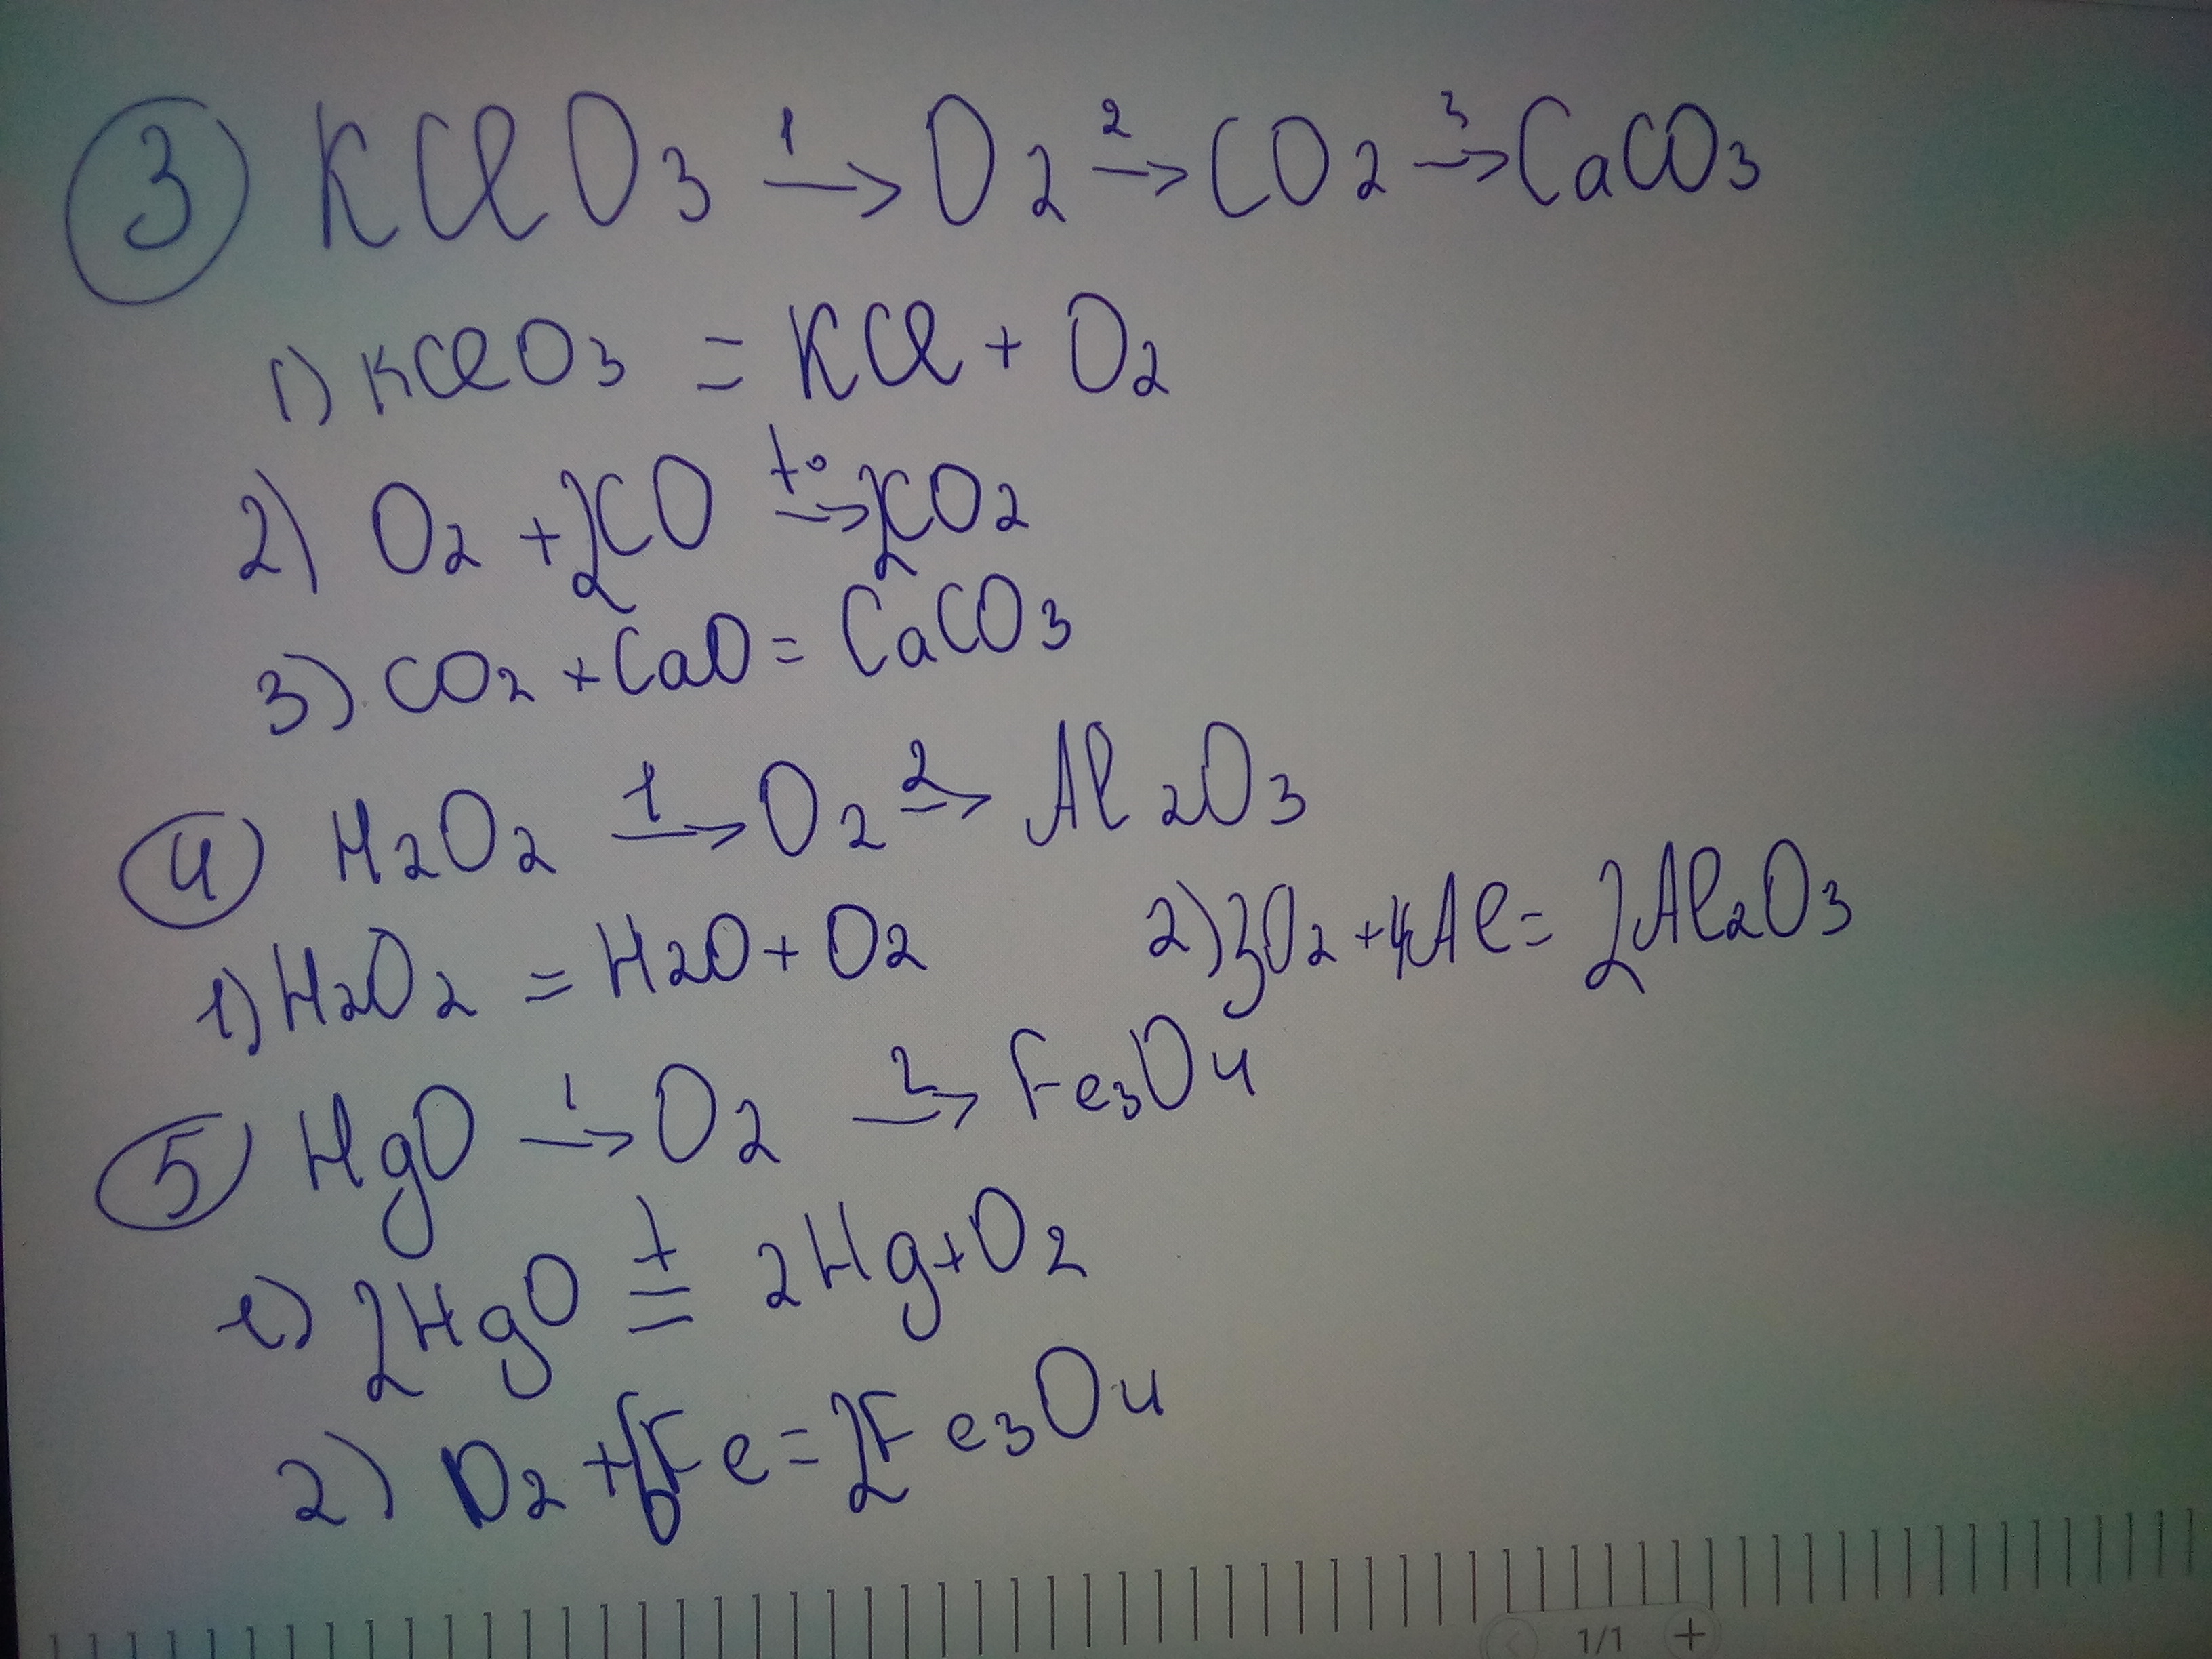 3 KClO3 1→ O2 2→ CO2 3→ CaCO3
1) KClO3 = KCl + O2
2) O2 + 2CO t°→ 2CO2
3) CO2 + CaO = CaCO3
4 H2O2 1→ O2 2→ Al2O3
1) H2O2 = H2O + O2 2) 3O2 + 4Al = 2Al2O3
5 HgO 1→ O2 2→ Fe3O4
1) 2HgO t= 2Hg + O2
2) O2 + 6Fe = 2Fe3O4
1/1 +